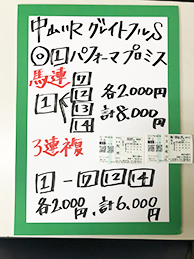 中山11R グレイトフルS
◎1 パフォーマプロミス
馬連
1 7 12 13 14 各2,000円
計8,000円
3連複
1-7 12 14
各2,000円、計6,000円